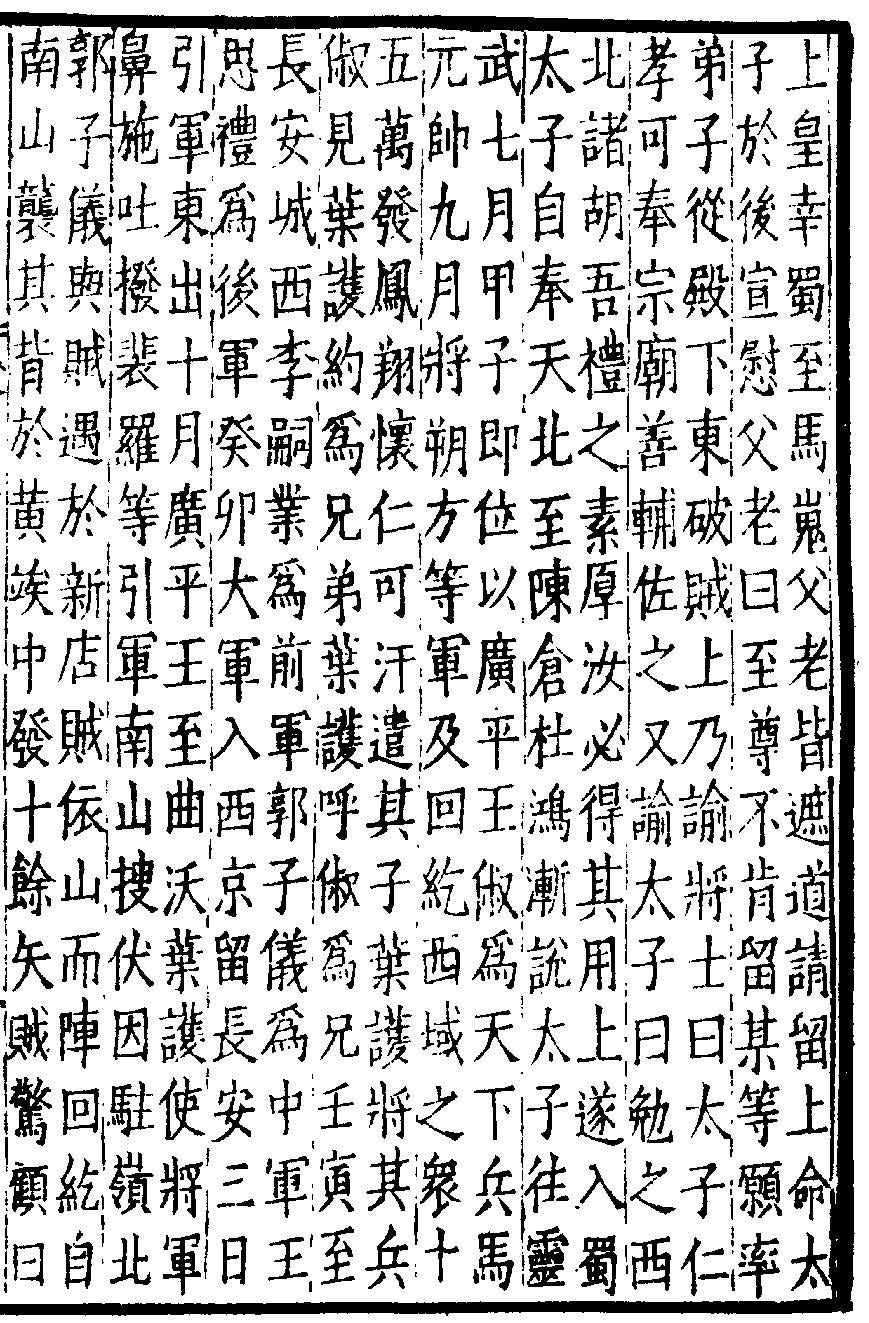 上皇幸蜀至馬嵬父老皆遮道請留上命太
子於後宣慰父老曰至尊不肯留某等願率
弟子從殿下東破賊上乃諭將士曰太子仁
孝可奉宗廟善輔佐之又諭太子曰勉之西
北諸胡吾禮之素厚汝必得其用上遂入蜀
太子自奉天北至陳倉杜鴻漸說太子往靈
武七月甲子即位以廣平王俶為天下兵馬
元帥九月將朔方等軍及回紇西域之衆十
五萬發鳳翔懷仁可汗遣其子葉護將其兵
俶見葉護約爲兄弟葉護呼俶爲兄壬寅至
長安城西李嗣業爲前軍郭子儀爲中軍王
思禮爲後軍癸卯大軍入西京留長安三日
引軍東出十月廣平王至曲沃葉護使將軍
鼻施吐撥裴羅等引軍南山搜伏因駐嶺北
郭子儀與賊遇於新店賊依山而陣回紇自
南山襲其背於黃埃中發十餘矢賊驚顧曰